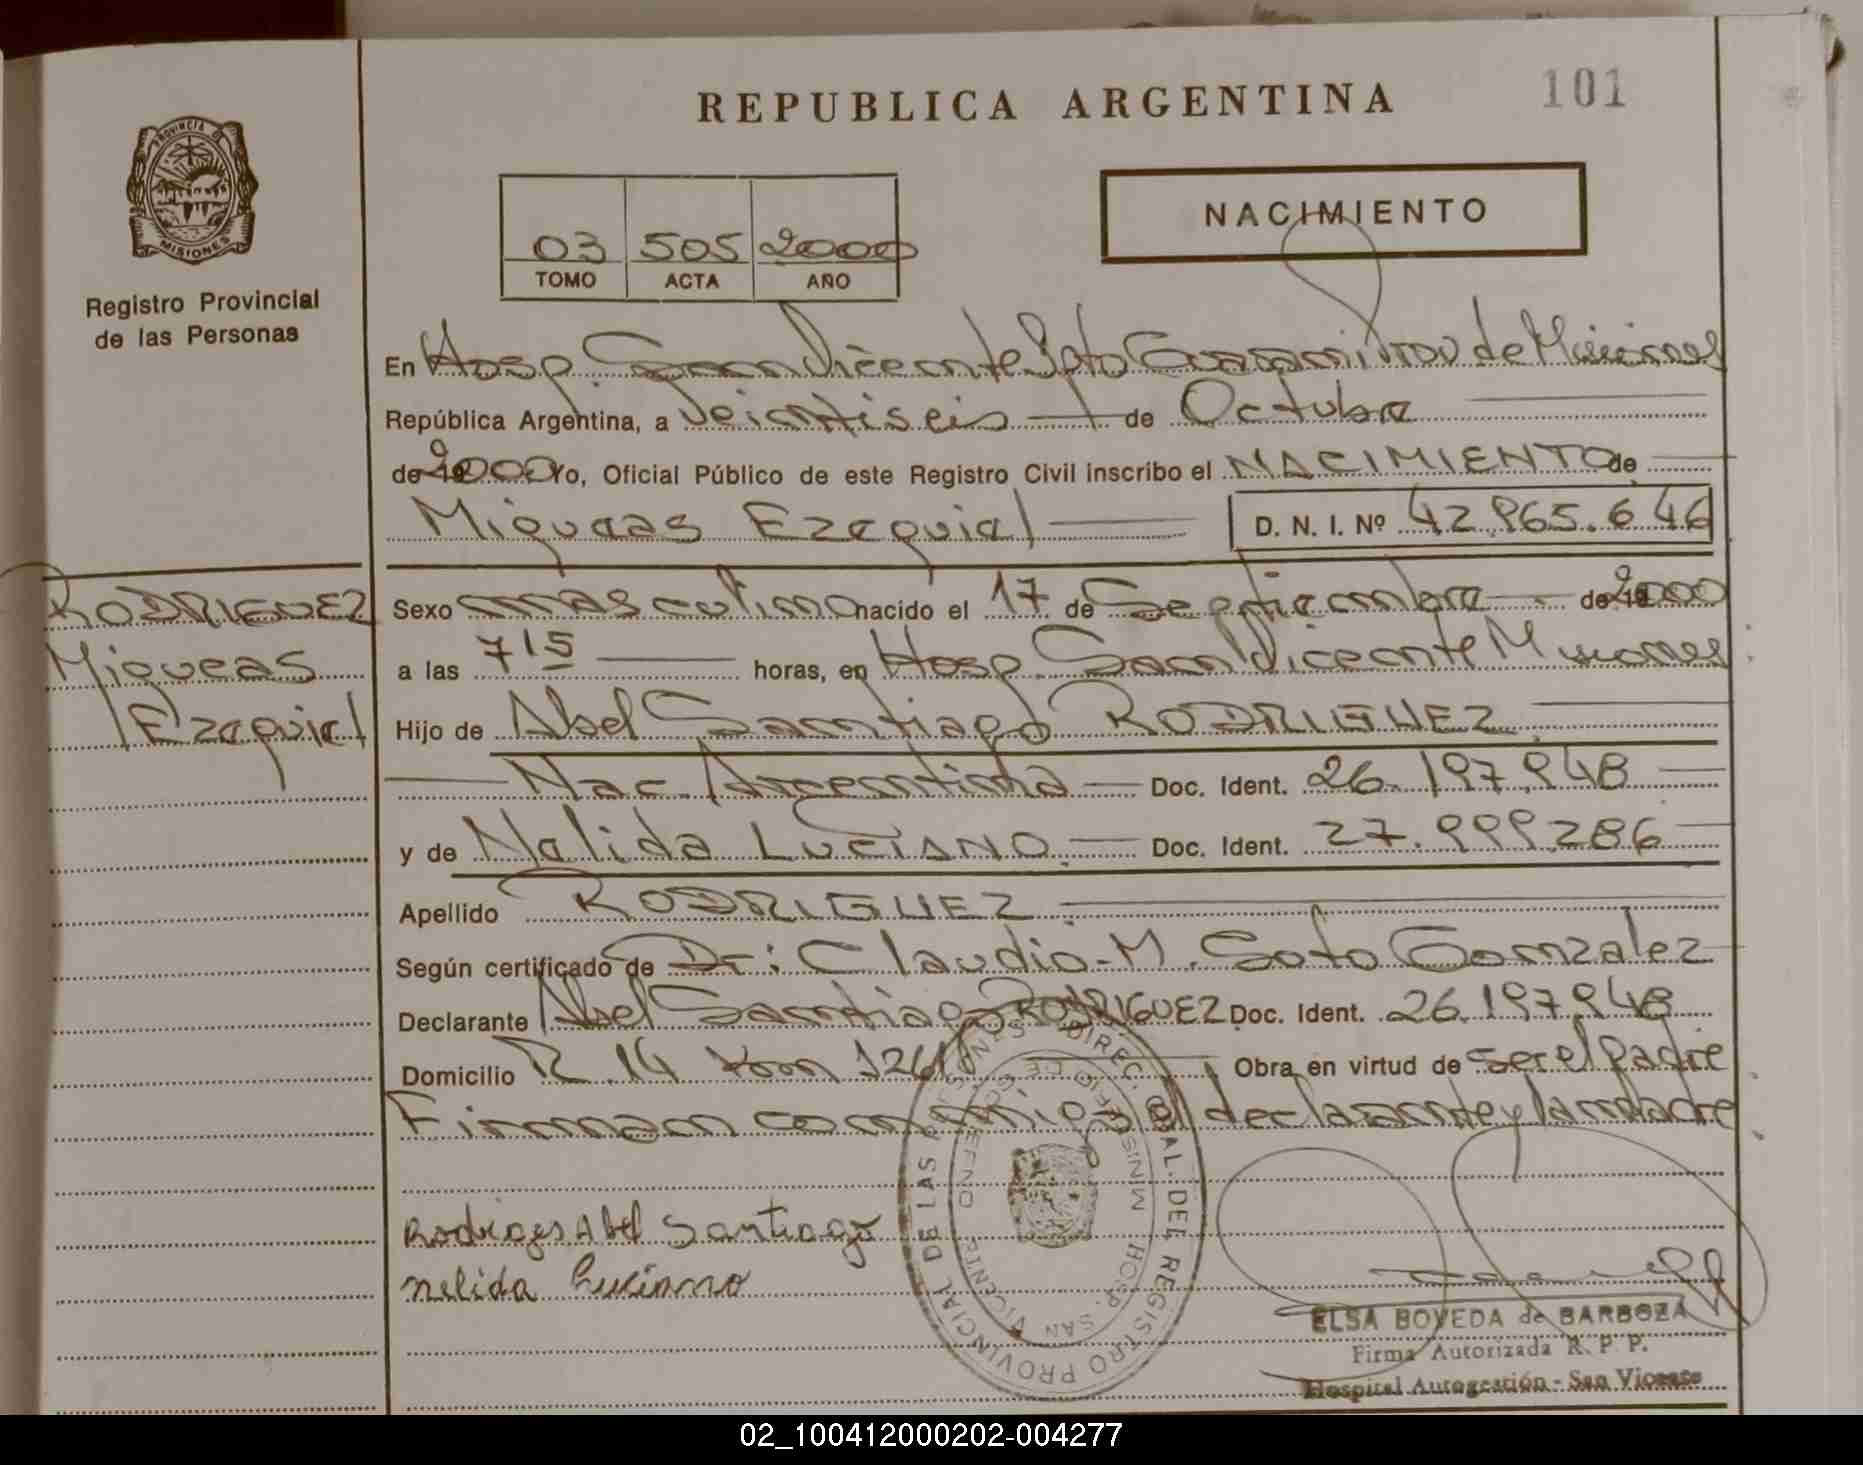 REPUBLICA ARGENTINA
101
PROVINCIA DE
MISIONES
Registro Provincial
de las Personas
03 505 2000
TOMO ACTA AÑO
NACIMIENTO
En Hosp. San Vicente Dpto Guaraní Prov de Misiones
República Argentina, a Veintiseis de Octubre
de 19 2000 Yo, Oficial Público de este Registro Civil inscribo el NACIMIENTO de
Miqueas Ezequiel D. N. I. Nº 42.965.646
RODRIGUEZ
Miqueas
Ezequiel
Sexo masculino nacido el 17 de Septiembre de 19 2000
a las 715 horas, en Hosp. San Vicente Misiones
Hijo de Abel Santiago RODRIGUEZ
Nac. Argentina Doc. Ident. 26.197.948
y de Nelida LUCIANO Doc. Ident. 27.999.286
Apellido RODRIGUEZ
Según certificado de Dr: Claudio M. Soto Gonzalez
Declarante Abel Santiago RODRIGUEZ Doc. Ident. 26.197.948
Domicilio R. 14 Km Obra en virtud de ser el padre
Firman conmigo el declarante y la madre
Abel Santiago
nelida Luciano
DIREC. GRAL. DEL REGISTRO PROVINCIAL DE LAS
HOSP. SAN VICENTE
ELSA BOVEDA de BARBOZA
Firma Autorizada R. P. P.
Hospital Autogestión - San Vicente
02_100412000202-004277